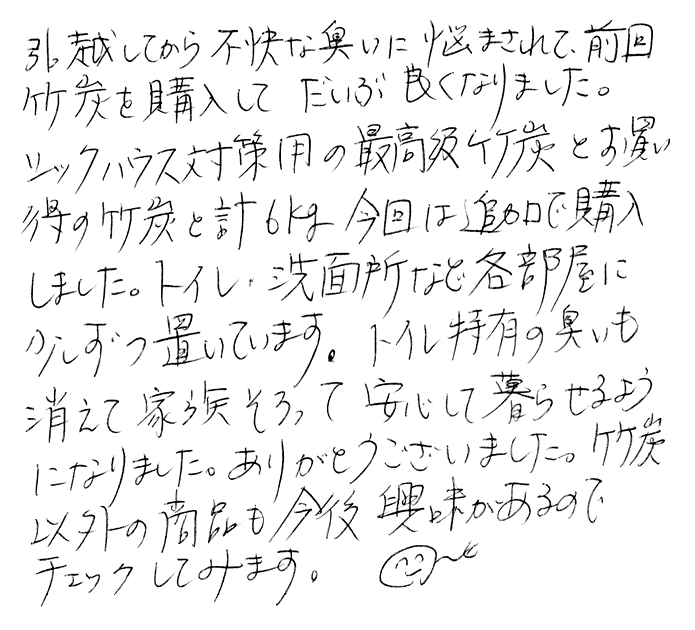 引越してから不快な臭いに悩まされて、前回
竹炭を購入して だいぶ良くなりました。
シックハウス対策用の最高級竹炭とお買い
得の竹炭と計6kg 今回は追加で購入
しました。トイレ・洗面所など各部屋に
少しずつ置いています。トイレ特有の臭いも
消えて家族そろって安心して暮らせるよう
になりました。ありがとうございました。竹炭
以外の商品も今後興味があるので
チェックしてみます。